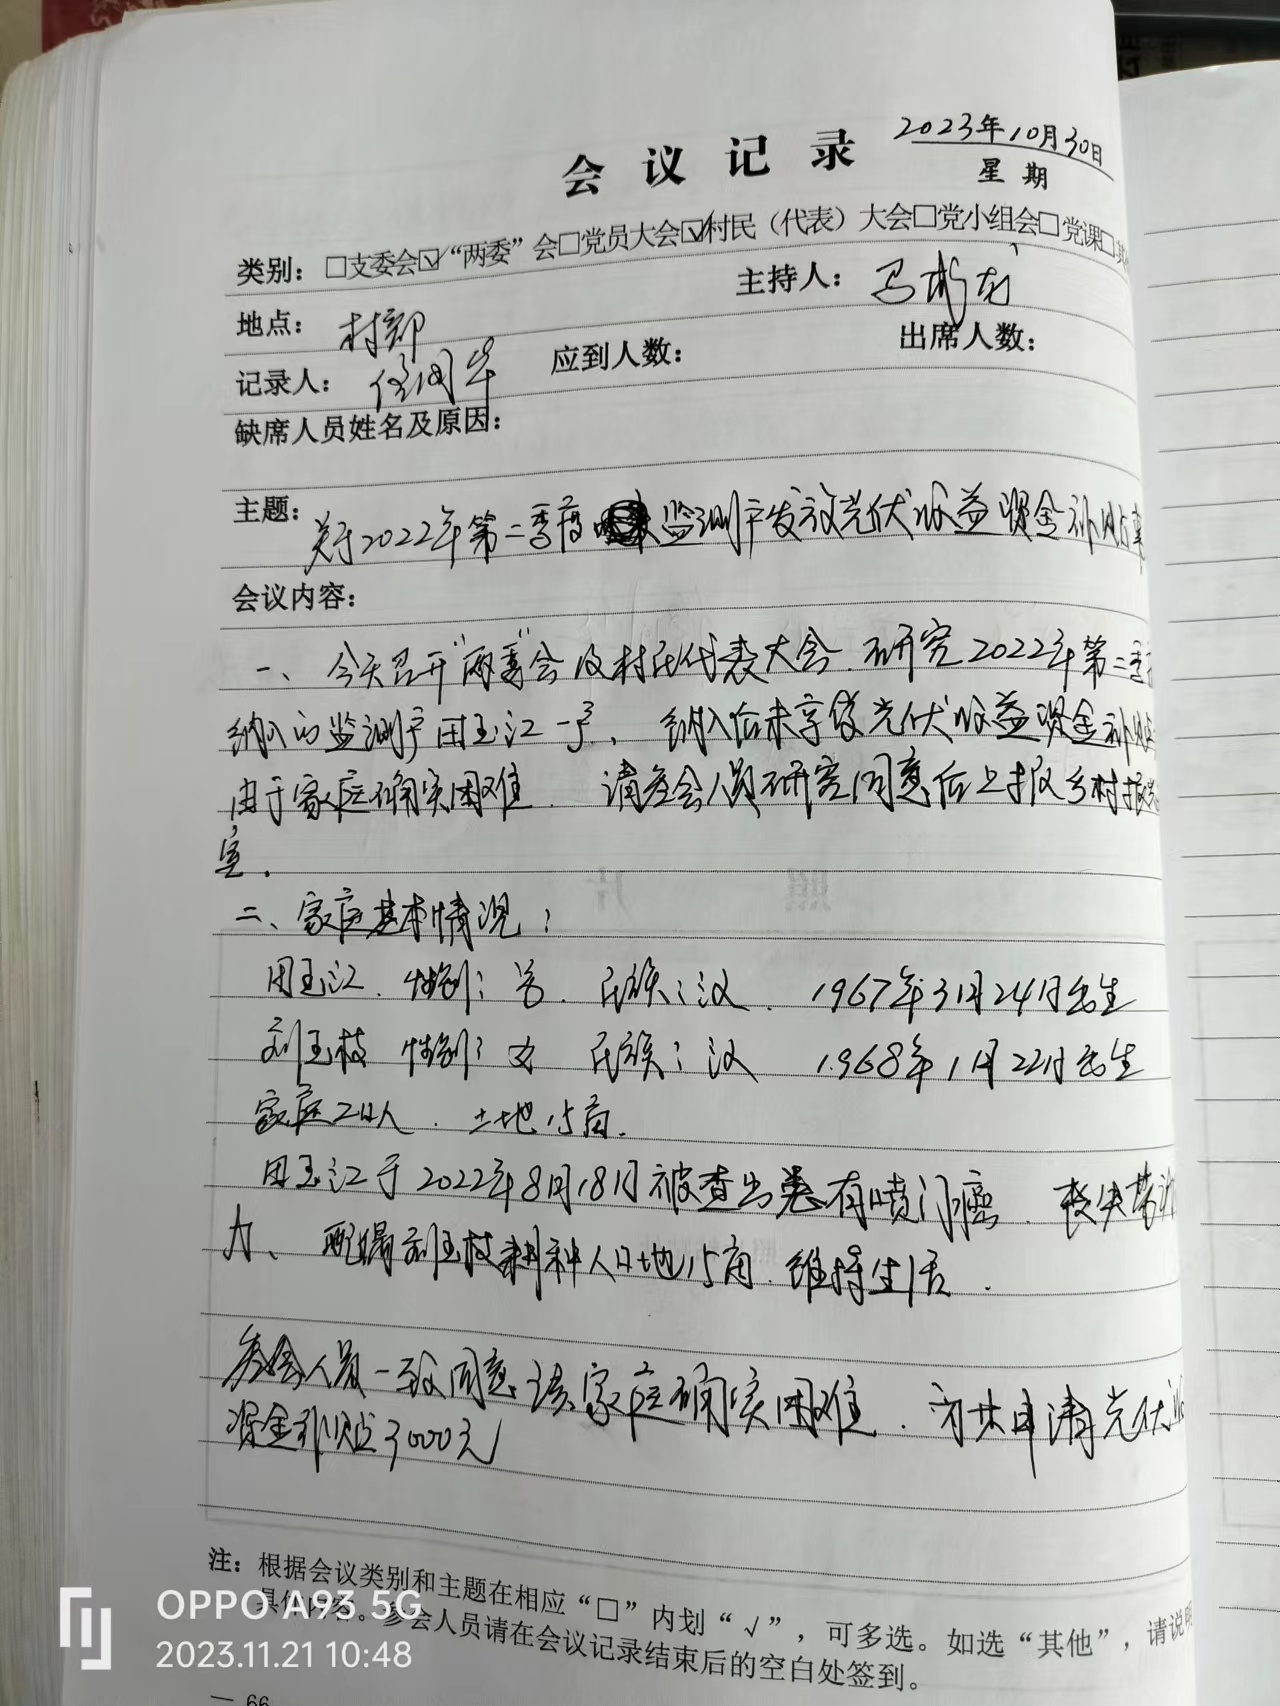 2023年10月30日
会议记录
星期
类别：□支委会☑“两委”会□党员大会☑村民（代表）大会□党小组会□党课□其
地点：村部 主持人：马彬龙
记录人：任国华 应到人数： 出席人数：
缺席人员姓名及原因：
主题：关于2022年第二季度监测户发放光伏收益资金补贴事
会议内容：
一、今天召开“两委”会及村民代表大会.研究2022年第二季
纳入的监测户田玉江一户、纳入后未享受光伏收益资金补贴
由于家庭确实困难.请参会人员研究同意后上报乡村振兴
室.
二、家庭基本情况：
田玉江.性别：男.民族：汉.1967年3月24日出生
刘玉枝 性别：女 民族：汉 1968年1月22日出生
家庭2口人.土地15亩.
田玉江于2022年8月18日被查出患有喷门癌.丧失劳动
力、配偶刘玉枝耕种人口地15亩.维持生活.
参会人员一致同意该家庭确实困难.为其申请光伏收
资金补贴3000元
注：根据会议类别和主题在相应“□”内划“√”，可多选。如选“其他”，请说明
具体内容。参会人员请在会议记录结束后的空白处签到。
— 66
OPPO A93 5G
2023.11.21 10:48